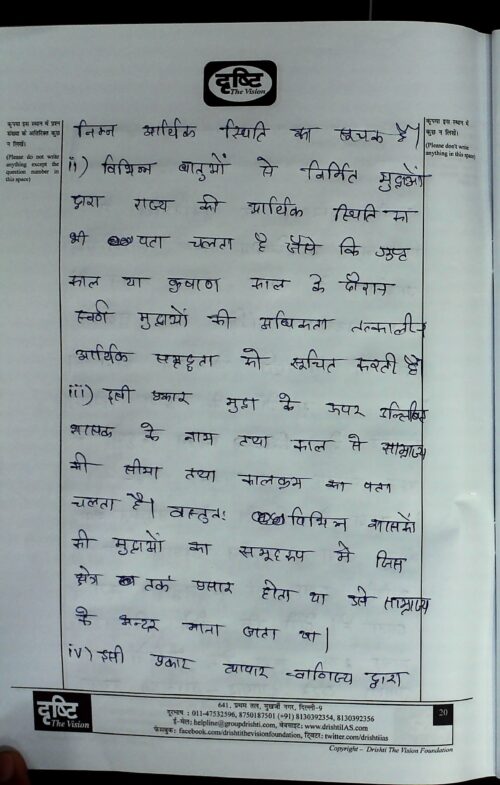 दृष्टि
The Vision
कृपया इस स्थान में प्रश्न
संख्या के अतिरिक्त कुछ
न लिखें।
(Please do not write
anything except the
question number in
this space)
कृपया इस स्थान में
कुछ न लिखें।
(Please don't write
anything in this space)
निम्न आर्थिक स्थिति का सूचक है।
ii) विभिन्न धातुओं से निर्मित मुद्राओं
द्वारा राज्य की आर्थिक स्थिति का
भी पता चलता है जैसे कि गुप्त
काल या कुषाण काल के दौरान
स्वर्ण मुद्राओं की अधिकता तत्कालीन
आर्थिक समृद्धता को सूचित करती है
iii) इसी प्रकार मुद्रा के ऊपर उल्लिखित
शासक के नाम तथा काल से साम्राज्य
की सीमा तथा कालक्रम का पता
चलता है। वस्तुतः विभिन्न शासकों
की मुद्राओं का समूहरूप में जिस
क्षेत्र तक प्रसार होता था उसे साम्राज्य
के अन्दर माना जाता था।
iv) इसी प्रकार व्यापार-वाणिज्य द्वारा
दृष्टि
The Vision
641, प्रथम तल, मुखर्जी नगर, दिल्ली-9
दूरभाष : 011-47532596, 8750187501 (+91) 8130392354, 8130392356
ई-मेल: helpline@groupdrishti.com, वेबसाइट: www.drishtiIAS.com
फेसबुक: facebook.com/drishtithevisionfoundation, ट्विटर: twitter.com/drishtiias
20
Copyright – Drishti The Vision Foundation